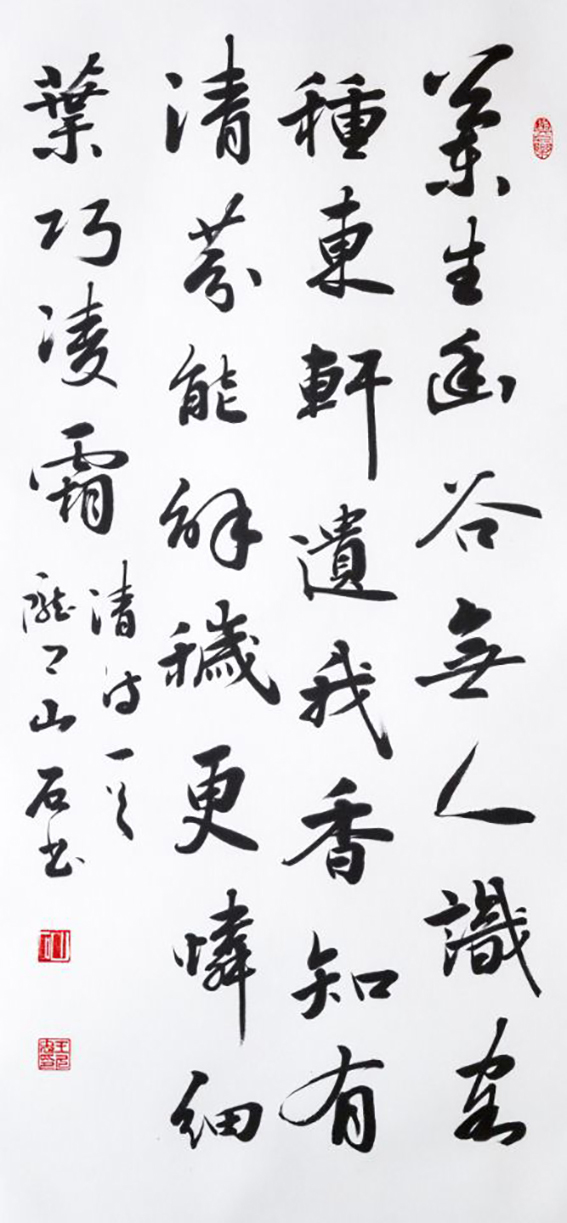 蘭生幽谷無人識客
種東軒遺我香知有
清芬能解穢更憐細
葉巧凌霜
清詩一首
隴上山石書